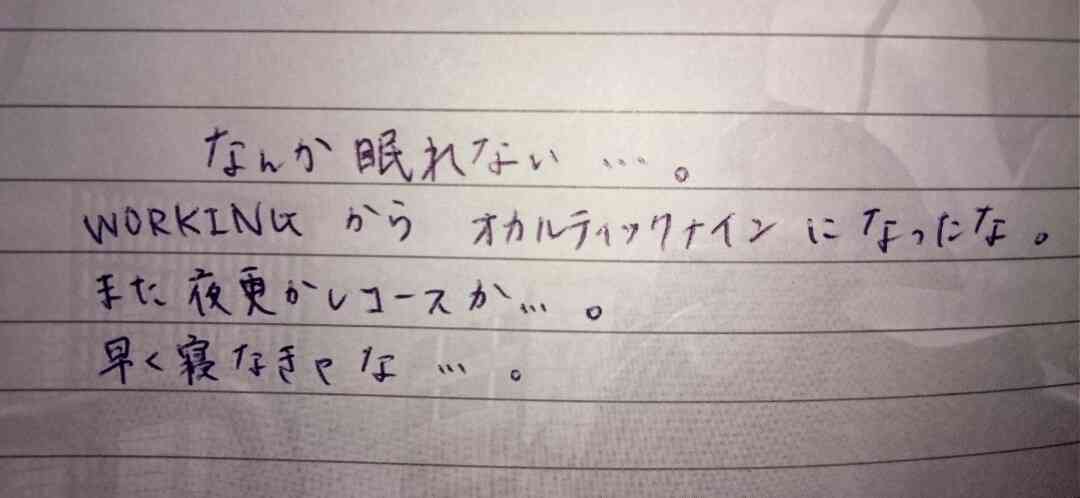 なんか眠れない…。
WORKING から オカルティックナイン になったな。
また夜更かしコースか…。
早く寝なきゃな…。